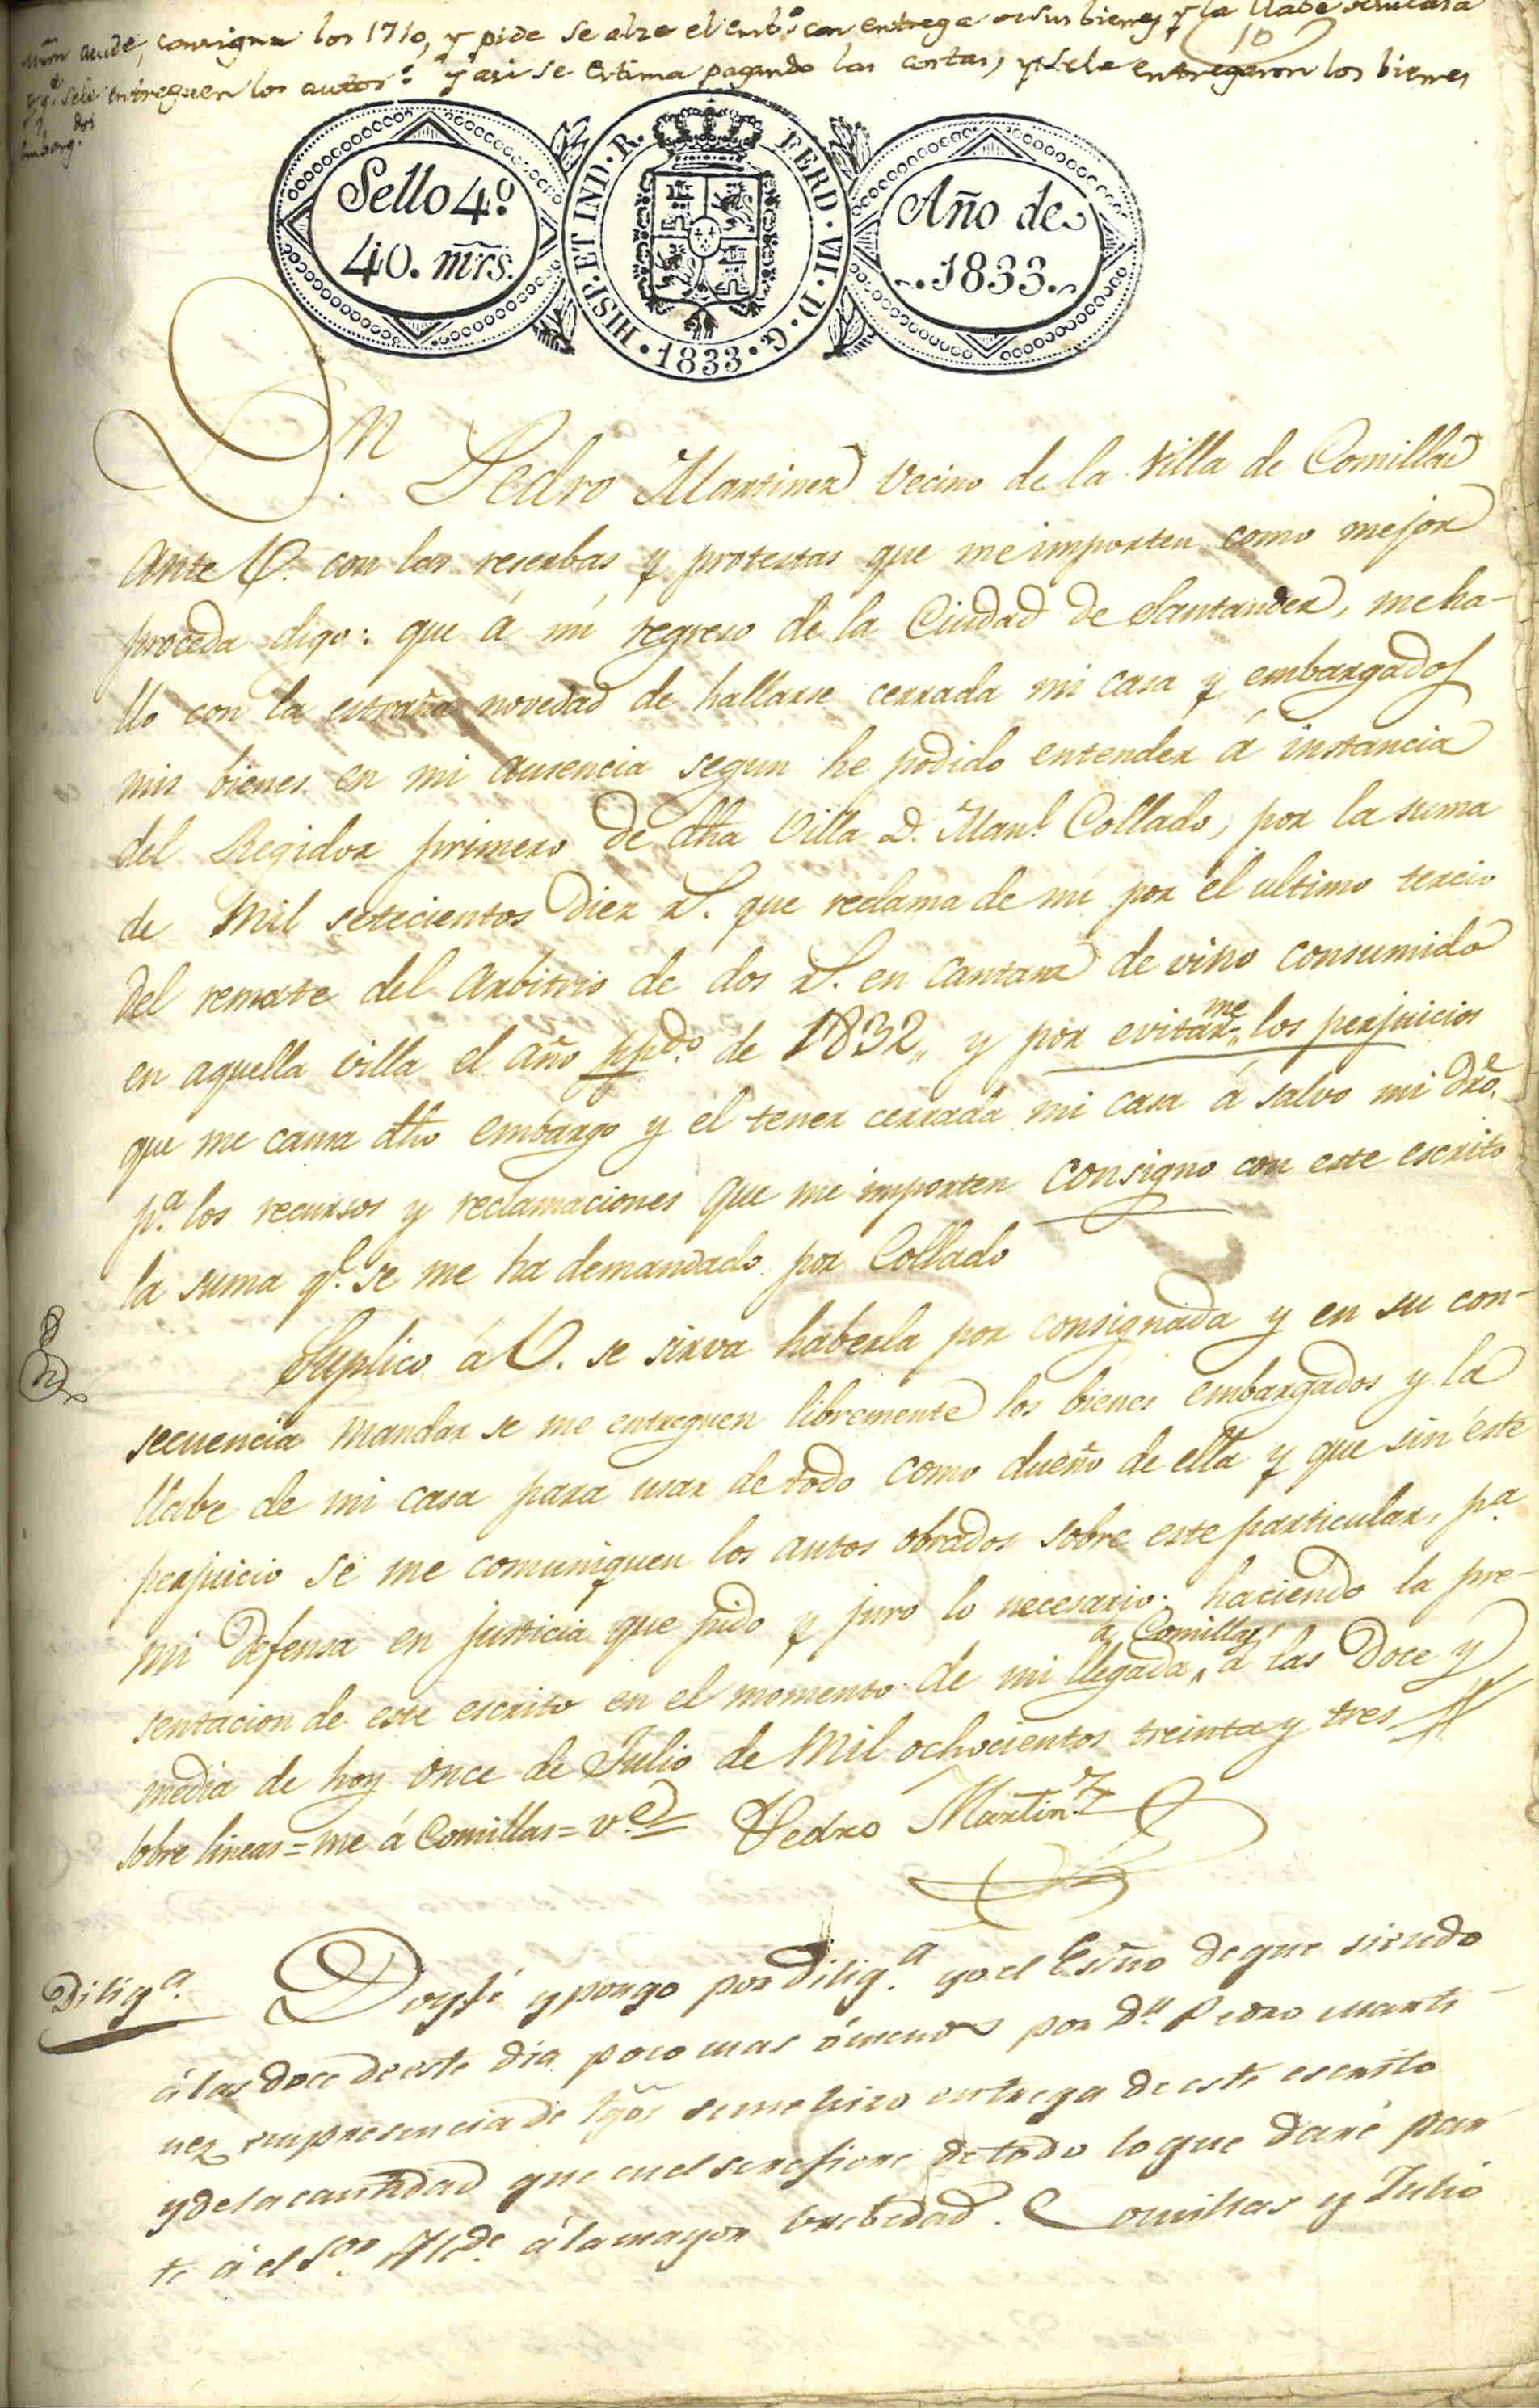 acude, consigna los 1710, y pide se alze el emb.º con entrega de sus bienes y la llabe de su casa
y q.e se le entreguen los autos: y asi se estima pagando las costas, y se le entregaron los bienes
embarg.dos
10
Sello 4.º
40. mrs.
HISP. ET IND. R. FERD. VII. D. G. 1833.
Año de
1833.
Dn Pedro Martinez Vecino de la Villa de Comillas
Ante V. con las reserbas y protestas que me importen como mejor
proceda digo: que á mi regreso de la Ciudad de Santander, me ha-
llo con la estraña novedad de hallarse cerrada mi casa y embargados
mis bienes en mi ausencia segun he podido entender á instancia
del Regidor primero de dha Villa D. Man.l Collado, por la suma
de Mil setecientos Diez rs. que reclama de mi por el ultimo tercio
del remate del Arbitrio de dos rs. en cantara de vino consumido
en aquella villa el año ppdo. de 1832,, y por evitarme los perjuicios
que me causa dho embargo y el tener cerrada mi casa á salvo mi dro.
p.a los recursos y reclamaciones que me importen consigno con este escrito
la suma q.e se me ha demandado por Collado
Suplico á V. se sirva haberla por consignada y en su con-
secuencia mandar se me entreguen libremente los bienes embargados y la
llabe de mi casa para usar de todo como dueño de ella y que sin este
perjuicio se me comuniquen los autos obrados sobre este particular, p.a
mi defensa en justicia que pido y juro lo necesario: haciendo la pre-
sentacion de este escrito en el momento de mi llegada á Comillas, á las Doce y
media de hoy once de Julio de Mil ochocientos treinta y tres
sobre lineas = me á Comillas = v.e Pedro Martin.z
Dilig.a Doy fé y pongo por Dilig.a yo el Esñno de que siendo
á las doce de este dia poco mas ó menos por D.n Pedro Marti-
nez en presencia de tgos se me hizo entrega de este escrito
y de la cantidad que en el se refiere de todo lo que daré par-
te á el Sor. Alc.de á la mayor brebedad. Comillas y Julio